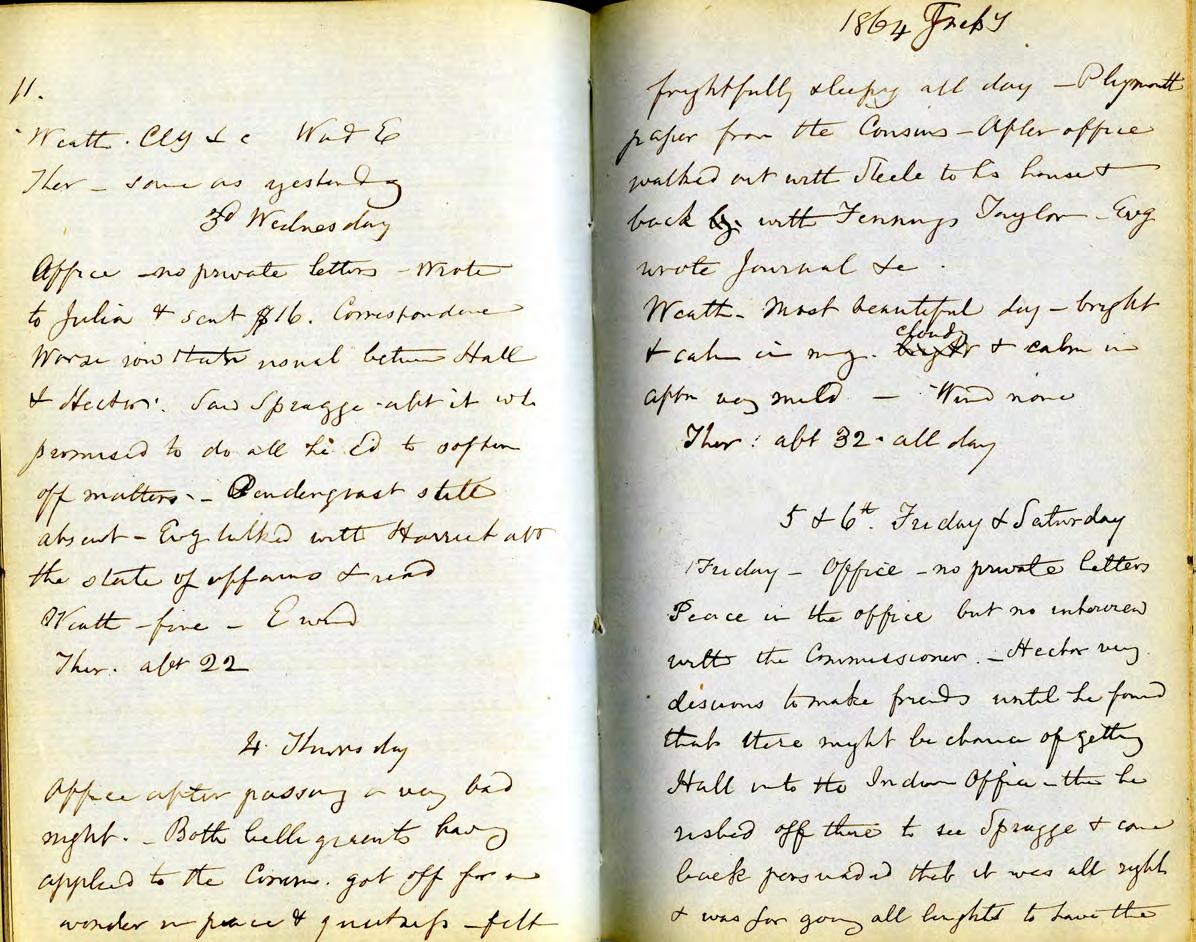 11.
Weath. Cldy &c Wd E
Ther – same as yesterday
3d Wednesday
Office – no private letters – Wrote
to Julia & sent $16. Correspondence
Worse row than usual between Hall
& Hector. Saw Spragge abt it who
promised to do all he cd to soften
off matters. – Pendergrast still
absent – Evg talked with Harriet abt
the state of affairs & read
Weath – fine – E wind
Ther. abt 22
4 Thursday
Office after passing a very bad
night. – Both belligerents having
applied to the Comm. got off for a
wonder in peace & quietness – felt
1864 Feby
frightfully sleepy all day – Plymouth
paper from the Cousins – After office
walked out with Steele to his house &
back with Fennings Taylor – Evg
wrote Journal &c.
Weath – Most beautiful day – bright
& calm in mg. cloudy & calm in
aftn very mild – Wind none
Ther: abt 32 all day
5 & 6th. Friday & Saturday
Friday – Office – no private letters
Peace in the office but no interview
with the Commissioner. – Hector very
desirous to make friends until he found
that there might be chance of getting
Hall into the Indian Office – then he
rushed off there to see Spragge & came
back persuaded that it was all right
& was for going all lengths to have the